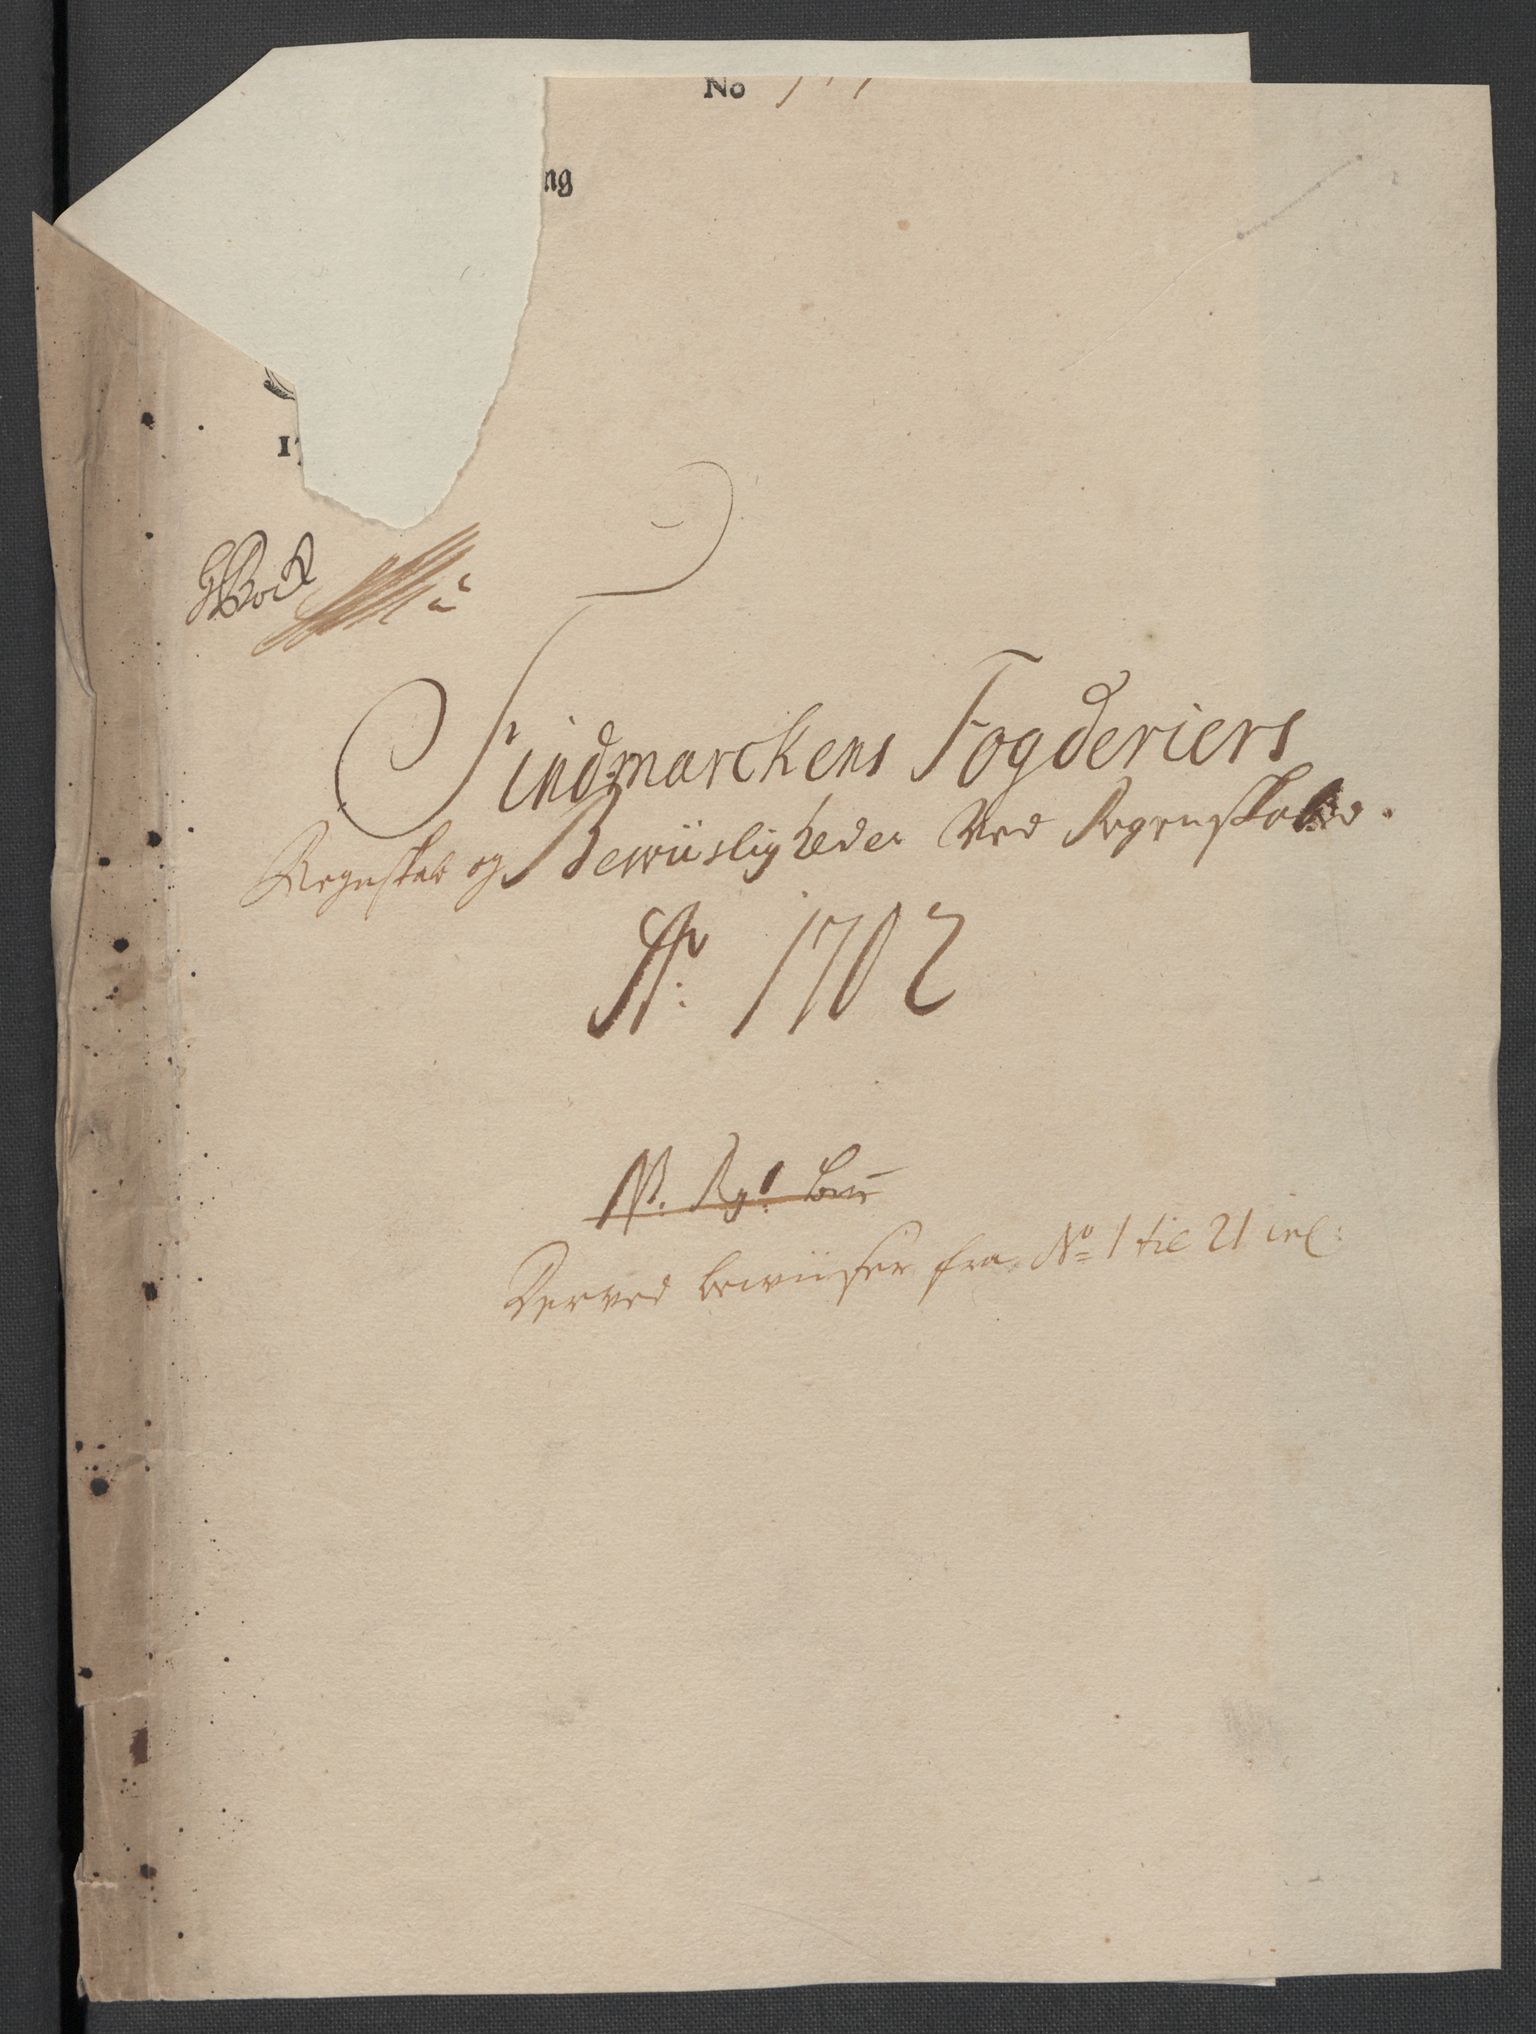 No
ng
17
GBock
Findmarckens Fogderiers
Regnskab og Bewiisligheder Ved Regenskabed.
Ao: 1702
No. Rgs: bew
Derved bewiiser fra No 1 til 21 incl: